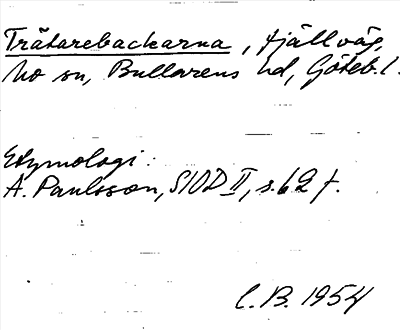 Trätarebackarna, fjällväg,
Mo sn, Bullarens hd, Göteb.l.
Etymologi:
A. Paulsson, SIOD II, s. 62 f.
C.B. 1954